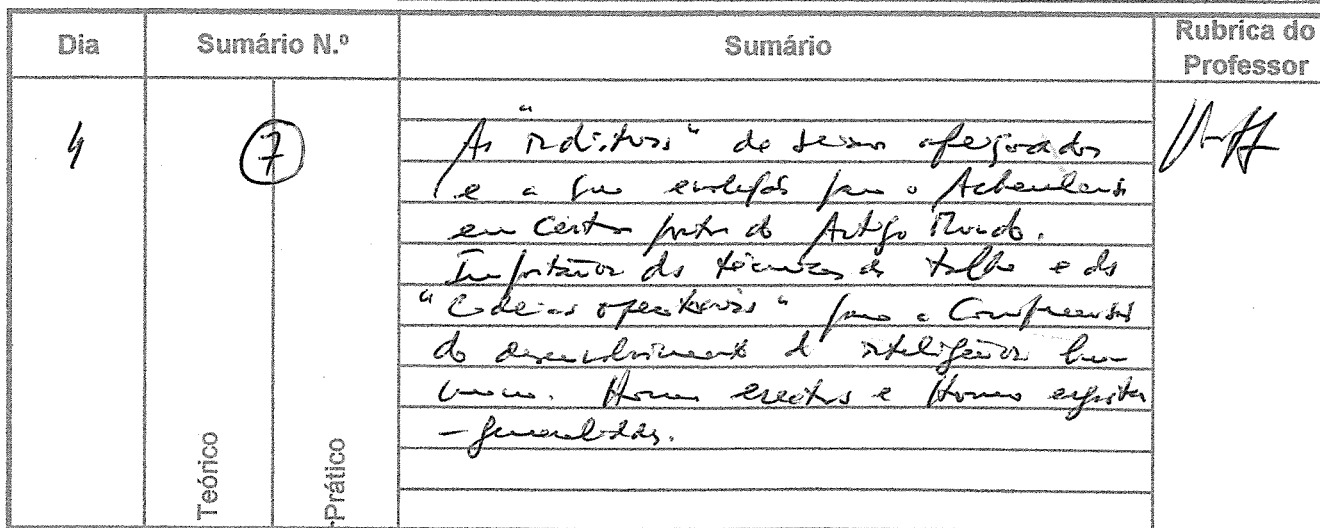 Dia
Sumário N.º
Sumário
Rubrica do
Professor
4
7
As "indústrias" de seixos afeiçoados
e a sua evolução para o Acheulense
em certas partes do Antigo Mundo.
Importância das técnicas de talhe e das
"Cadeias operatórias" para a compreensão
do desenvolvimento da inteligência hu-
mana. Homo erectus e Homo ergaster
- generalidades.
Teórico
-Prático